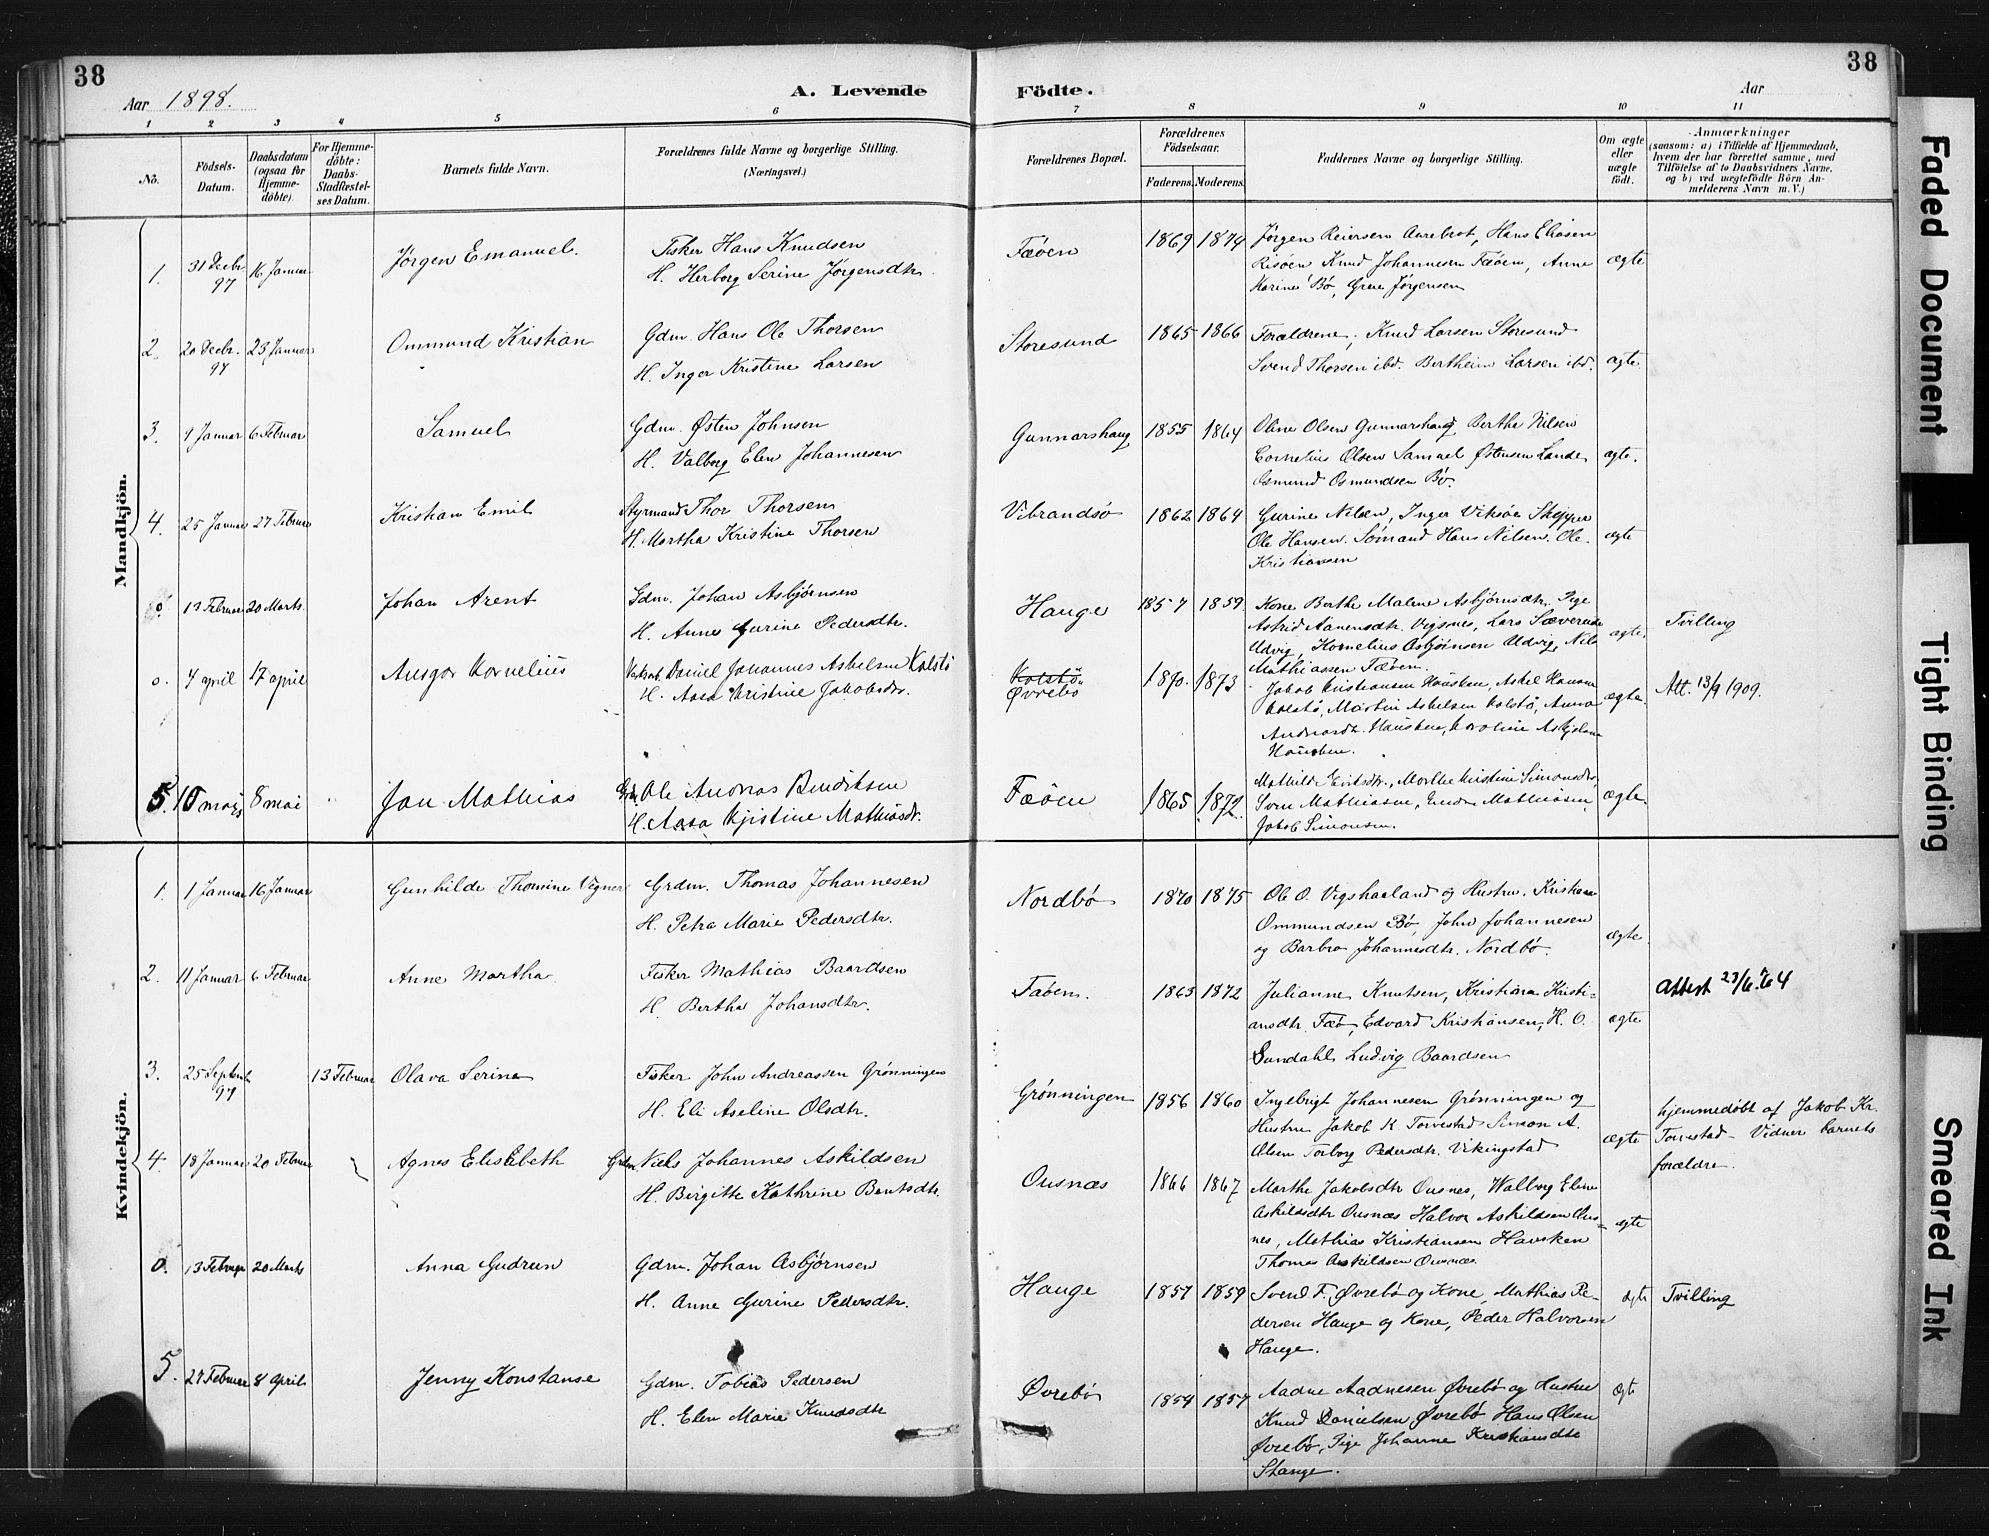 38
38
Aar 1898.
A. Levende
Födte.
Aar
1 2 3 4 5 6 7 8 9 10 11
No.
Födsels-
Datum.
Daabsdatum
(ogsaa for
Hjemme-
döbte).
For Hjemme-
döbte:
Daabs-
Stadfæstel-
ses Datum.
Barnets fulde Navn.
Forældrenes fulde Navne og borgerlige Stilling.
(Næringsvei.)
Forældrenes Bopæl.
Forældrenes
Födselsaar.
Faderens. Moderens.
Faddernes Navne og borgerlige Stilling.
Om ægte
eller
uægte
födt.
Anmærkninger
(saasom: a) i Tilfælde af Hjemmedaab,
hvem der har forrettet samme, med
Tilföielse af to Daabsvidners Navne.
og b) ved uægtefödte Börn An-
melderens Navn m. V.)
Mandkjön.
1. 31 Decbr. 97 16 Januar Jørgen Emanuel. Fisker Hans Knudsen
H. Herborg Serine Jørgensdtr.
Fæøen 1869 1874 Jørgen Reiersen Aarebrot, Hans Eliasen
Risøen Knud Johannesen Fæøen, Anne
Karine Bø, Grete Jørgensen
ægte
2. 20 Decbr. 97 23 Januar Ommund Kristian Gdm. Hans Ole Thorsen
H. Inger Kristine Larsen
Storesund 1865 1866 Forældrene, Knud Larsen Storesund
Svend Thorsen ibd. Bertheim Larsen ibd.
ægte.
3. 9 Januar 6 Februar Samuel Gdm. Østen Johnsen
H. Valborg Elen Johannesen
Gunnarshaug 1855 1864 Oline Olsen Gunnarshaug Bertha Nilsen
Cornelius Olsen Samuel Østensen Lande
Osmund Osmundsen Bø.
ægte.
4. 25 Januar 27 Februar Kristian Emil Styrmand Thor Thorsen
H. Martha Kristine Thorsen
Vibrandsø 1862 1864 Gurine Nilsen, Inger Viksøe Skipper
Ole Hansen. Sømand Hans Nilsen. Ole
Kristiansen
ægte
o. 13 Februar 20 Marts. Johan Arent Gdm. Johan Asbjørnsen
H. Anne Gurine Pedersdtr.
Hauge 1857 1859 Kone Berthe Malene Asbjørnsdtr. Pige
Astrid Aanensdtr. Vigsnes, Lars Sæverende
Udvig, Kornelius Asbjørnsen Udvig, Nils
Mathiassen Fæøen.
ægte. Tvilling
o. 4 april 17 april Ansgar Kornelius Daniel Johannes Askelsen Kolstø
H. Aasa Kristine Jakobsdtr.
Kolstø
Øvrebø
1870. 1873 Jakob Kristiansen Hausken, Askel Hansen
Kolstø, Martin Askelsen Kolstø, Anna
Andreasdtr. Hausken, Karoline Askjelsen
Hausken.
ægte. Att. 13/9 1909.
5. 10 mars 8 mai Jan Mathias Gdm. Ole Andreas Bendiksen
H. Aasa Kjistine Mathiasdtr.
Fæøen 1865 1872. Mathilde Eriksdtr., Marthe Kristine Simonsdtr,
Sven Mathiasen, Endre Mathiasen,
Jakob Simonsen.
ægte.
Kvindekjön.
1. 1 Januar 16 Januar Gunhilde Thomine Vegner Grdm. Thomas Johannesen
H. Petra Marie Pedersdtr.
Nordbø 1870 1875 Ole O. Vigshaaland og Hustru. Kristian
Ommundsen Bø, John Johannesen
og Barbro Johannesdtr. Nordbø.
ægte.
2. 11 Januar 6 Februar Anne Martha Fisker Mathias Baardsen
H. Bertha Johansdtr.
Fæøen. 1863 1872 Julianne Knutsen, Kristiana Kristi-
ansdtr. Fæø, Edvard Kristiansen, H. O.
Sundahl, Ludvig Baardsen
ægte Attest 23/6.64
3. 25 Septemb 97 13 Februar Olava Serine Fisker John Andreassen Grønningen
H. Eli Aseline Olsdtr.
Grønningen 1856 1860 Ingebrigt Johannesen Grønningen og
Hustru Jakob K Torvestad Simon A.
Olsen Torborg Pedersdtr. Vikingstad
ægte hjemmedøbt af Jakob Kr.
Torvestad – Vidner barnets
forældre.
4. 18 Januar 20 Februar Agnes Elisabeth Grdm. Niels Johannes Askildsen
H. Birgitte Kathrine Bentsdtr.
Ousnæs 1866 1867 Marthe Jakobsdtr Ousnes, Walborg Eline
Askildsdtr Ousnæs Halvor Askildsen Ous-
nes, Mathias Kristiansen Havsken
Thomas Askildsen Ousnæs.
ægte
o. 13 Februar 20 Marts Anna Gudrun Gdm. Johan Asbjørnsen
H. Anne Gurine Pedersdtr.
Hauge 1857 1859 Svend F. Øvrebø og Kone Mathias Pe-
dersen Hauge og Kone, Peder Halvorsen
Hauge.
ægte Tvilling
5. 27 Februar 8 April Jenny Konstanse Gdm. Tobias Pedersen
H. Elen Marie Knudsdtr
Øvrebø 1854 1857 Aadne Aadnesen Øvrebø og Hustru
Knud Danielsen Øvrebø Hans Olsen
Øvrebø, Pige Johanne Kristiansdtr
Stange.
ægte
Faded Document
Tight Binding
Smeared Ink